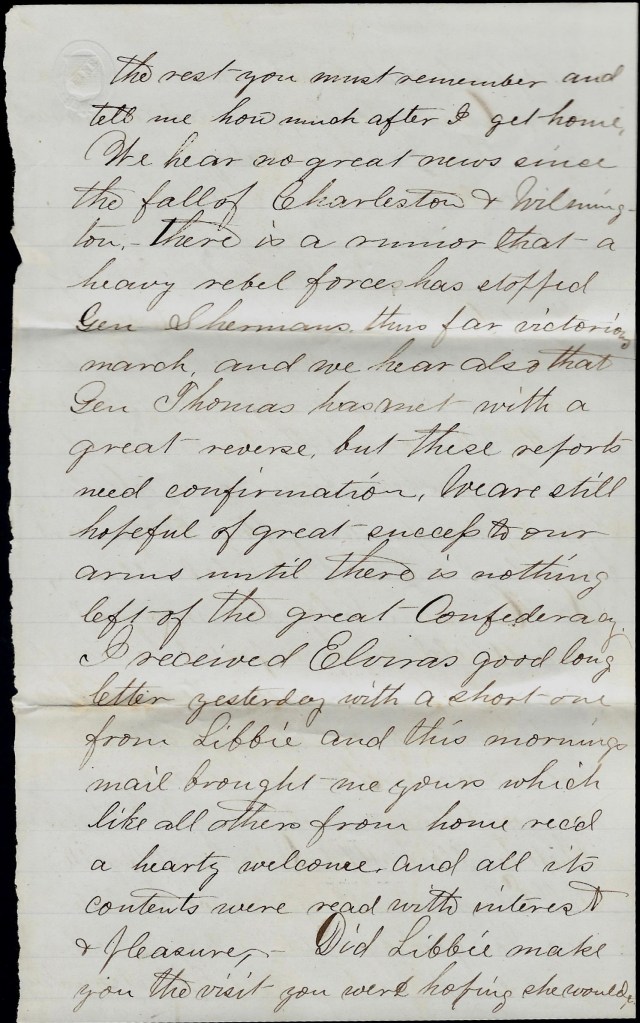 the rest you must remember and
tell me how much after I get home,
We hear no great news since
the fall of Charleston & Wilming-
ton, - there is a rumor that a
heavy rebel forces has stopped
Gen Shermans, thus far victorious
march, and we hear also that
Gen Thomas has met with a
great reverse, but these reports
need confirmation, We are still
hopeful of great success to our
arms until there is nothing
left of the great Confederacy.
I received Elviras good long
letter yesterday with a short one
from Libbie and this mornings
mail brought me yours which
like all others from home recd
a hearty welcome, and all its
contents were read with interest
& pleasure, - Did Libbie make
you the visit you were hoping she would,